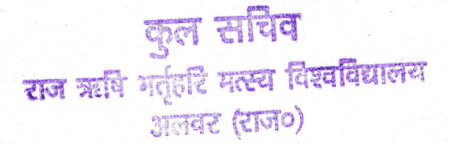 कुल सचिव
राज ऋषि भर्तृहरि मत्स्य विश्वविद्यालय
अलवर (राज०)